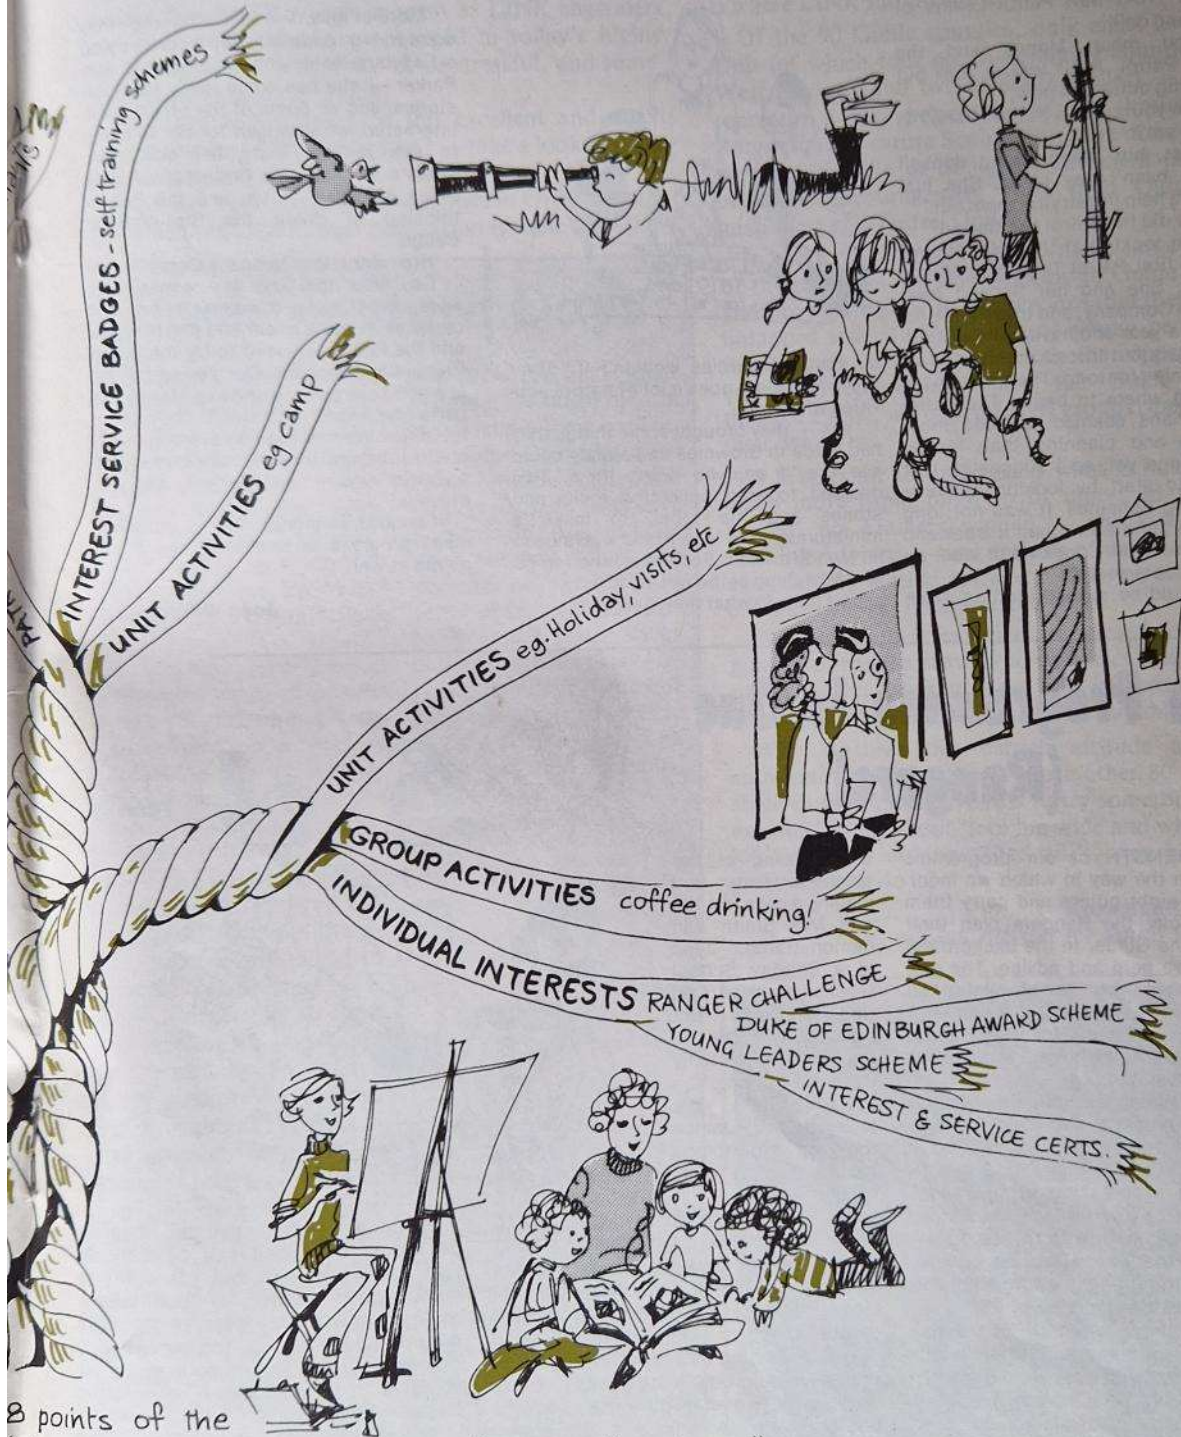 INTEREST SERVICE BADGES - self training schemes
UNIT ACTIVITIES eg camp
KNOTS
UNIT ACTIVITIES eg. Holiday, visits, etc
GROUP ACTIVITIES coffee drinking!
INDIVIDUAL INTERESTS RANGER CHALLENGE
DUKE OF EDINBURGH AWARD SCHEME
YOUNG LEADERS SCHEME
INTEREST & SERVICE CERTS.
8 points of the